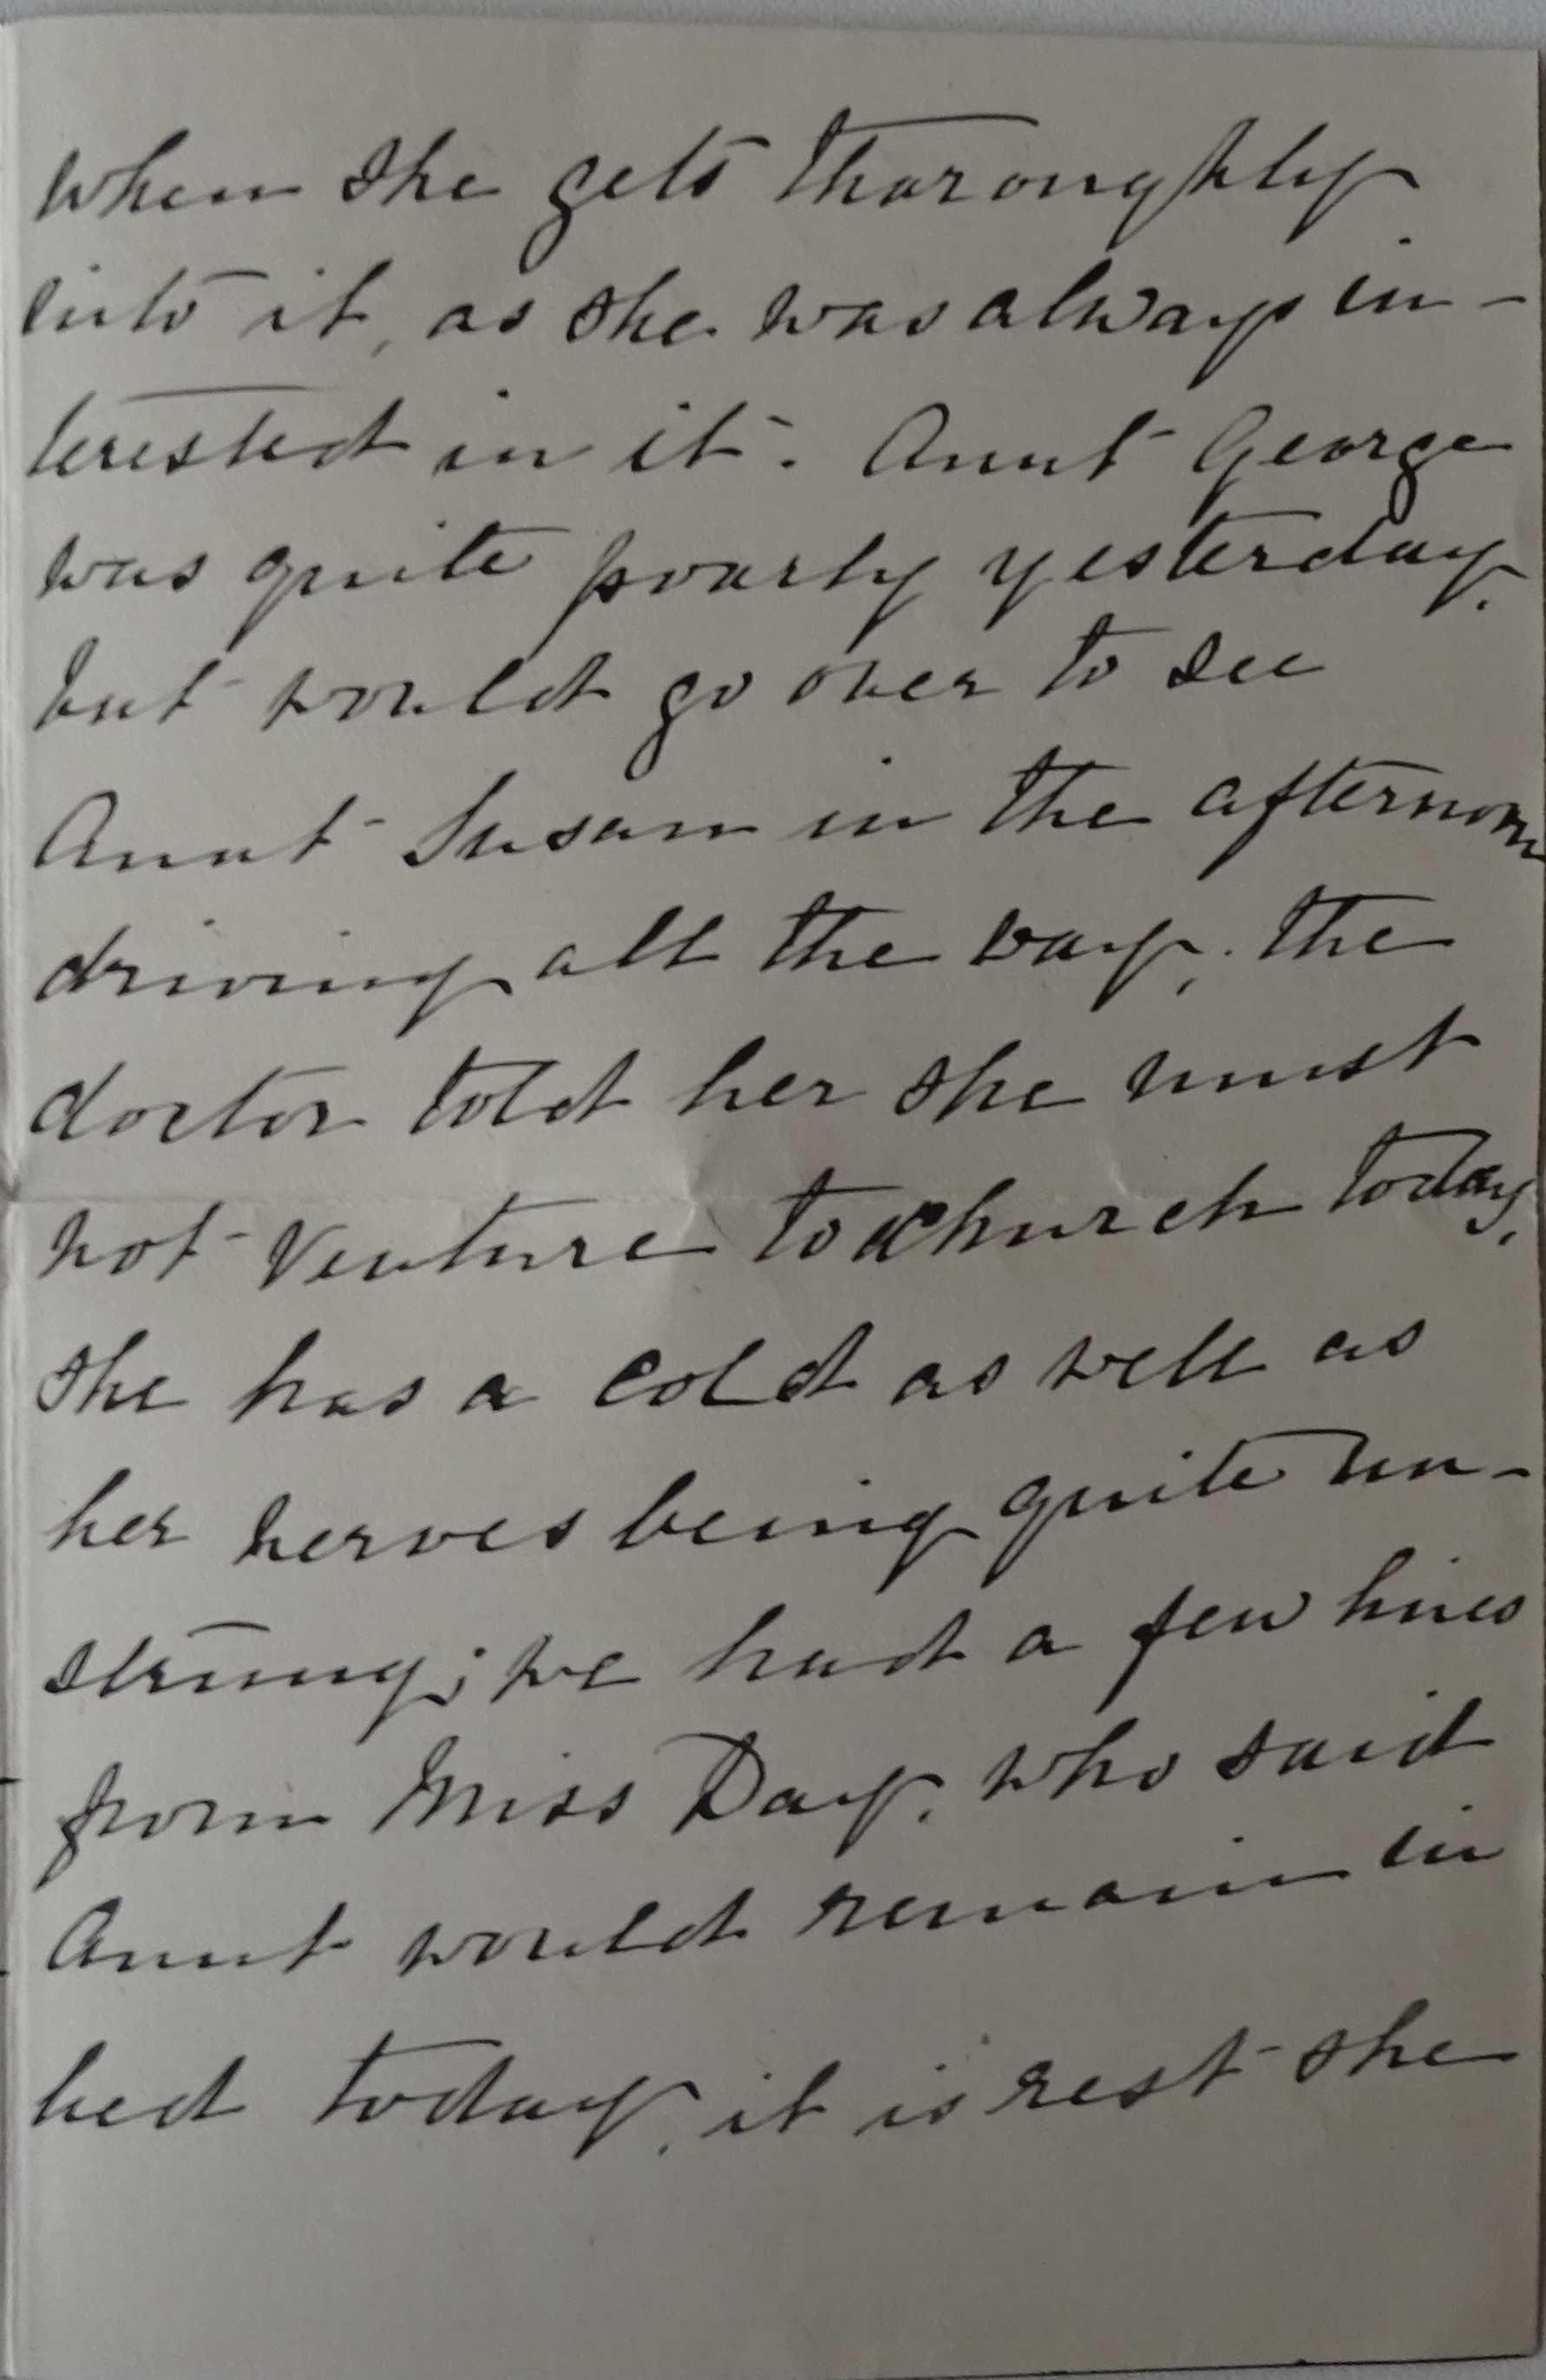 when she gets thoroughly
into it, as she was always in-
terested in it. Aunt George
was quite poorly yesterday.
but would go over to see
Aunt Susan in the afternoon
driving all the way, the
doctor told her she must
not venture to church today,
she has a cold as well as
her nerves being quite un-
strung; we had a few lines
from Miss Day, who said
Aunt would remain in
bed today, it is rest she